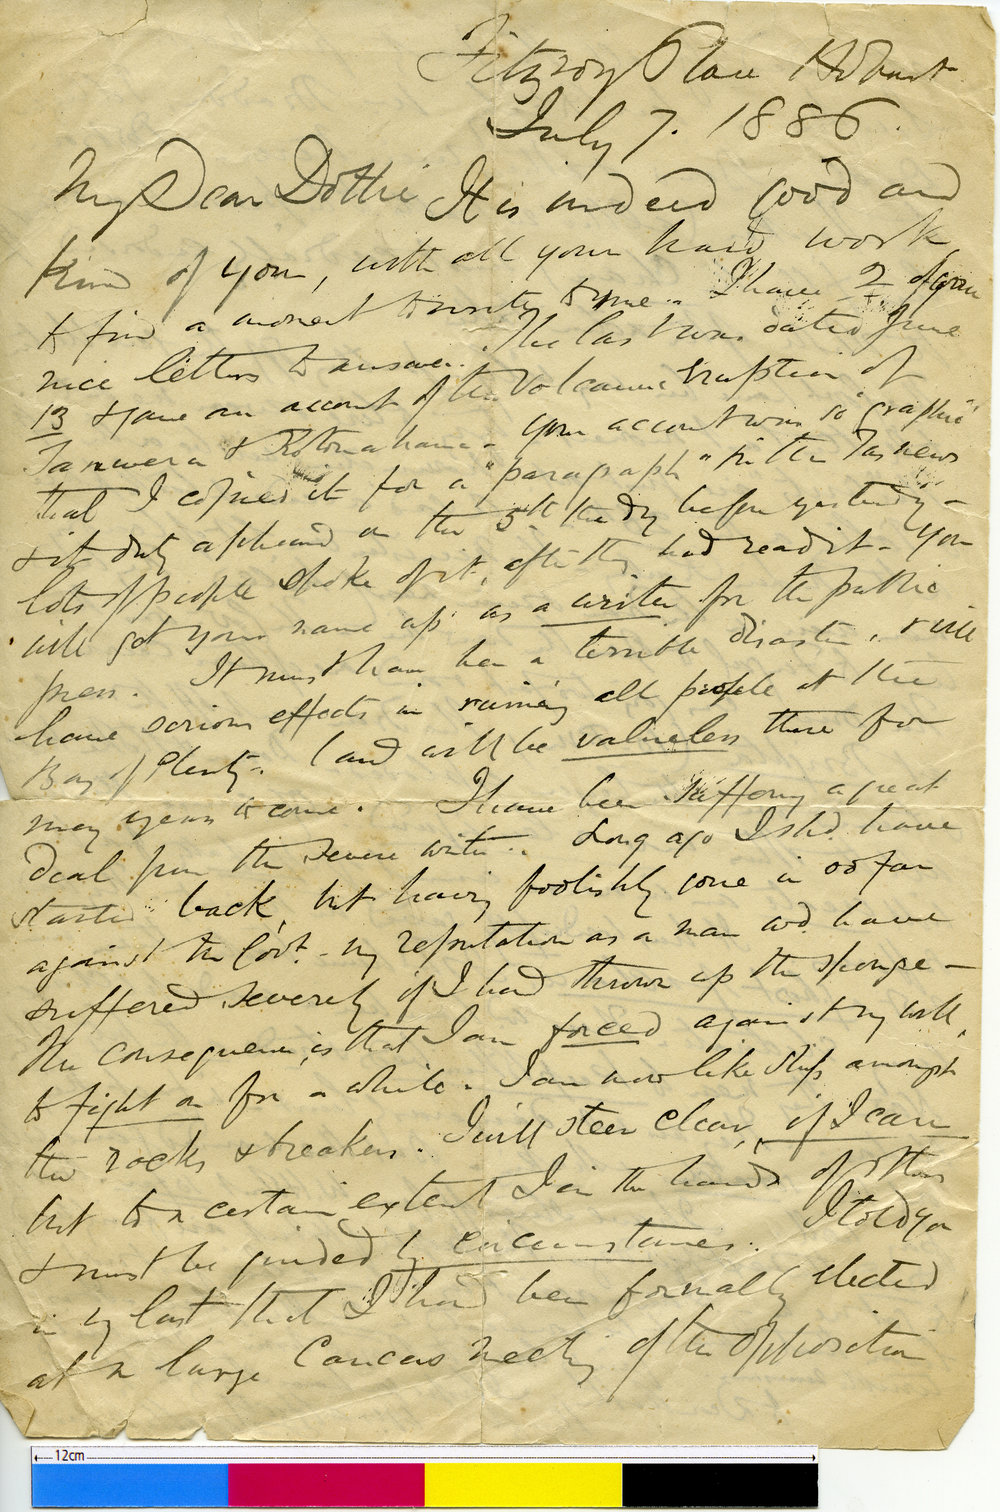 Fitzroy Place Hobart
July 7. 1886.
My Dear Dottie It is indeed good and
kind of you, with all your hard work,
to find a moment to write to me. I have 2 of your
nice letters to answer. The last was dated June
13 & gave an account of the Volcanic Eruption of
Tarawera & Rotomahana - your account was so "graphic"
that I copied it for a "paragraph" in the Tas news
& it duly appeared on the 5th the day before yesterday -
lots of people spoke of it, after they had read it - You
will get your name up as a writer for the public
press. It must have been a terrible disaster, & will
have serious effects in ruining all people at the
Bay of Plenty. land will be valueless there for
many years to come. I have been suffering a great
deal from the severe winter. Long ago I shd. have
started back, but having foolishly gone in so far
against the Govt. - my reputation as a man wd. have
suffered severely if I had thrown up the sponge -
The consequence is that I am forced against my will,
to fight on for a while. I am now like ship amongst
the rocks & breakers. I will steer clear, if I can
but to a certain extent I in the hands of others
& must be guided by circumstances. I told you
in my last that I had been formally elected
at a large Caucus Meeting of the opposition
12cm